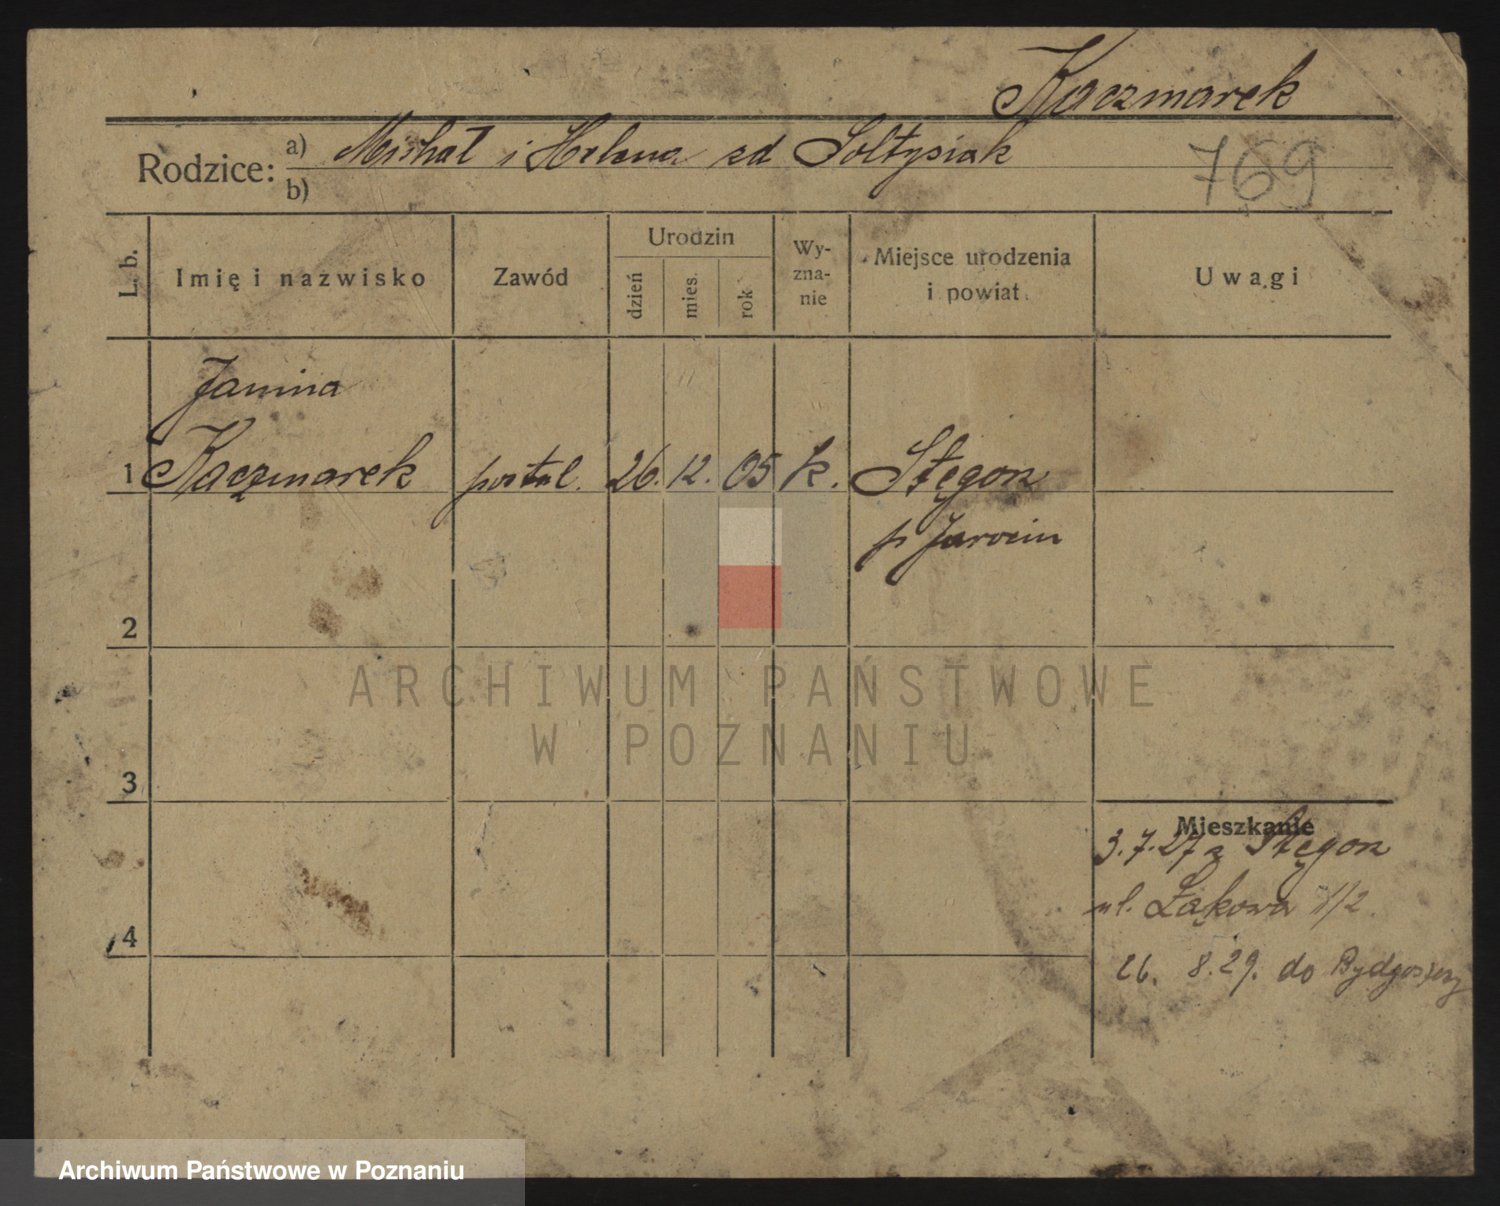 Kaczmarek
Rodzice: a) Michał i Helena zd Sołtysiak
b)
769
L. b.
Imię i nazwisko
Zawód
Urodzin
dzień
mies.
rok
Wy-
zna-
nie
Miejsce urodzenia
i powiat
Uwagi
Janina
1 Kaczmarek postul. 26. 12. 05 k. Stęgosz
p Jarocin
2
ARCHIWUM PAŃSTWOWE
W POZNANIU
3
Mieszkanie
3.7.27 z Stęgosz
ul. Łąkowa 1/2
4
26. 8.29. do Bydgoszczy
Archiwum Państwowe w Poznaniu